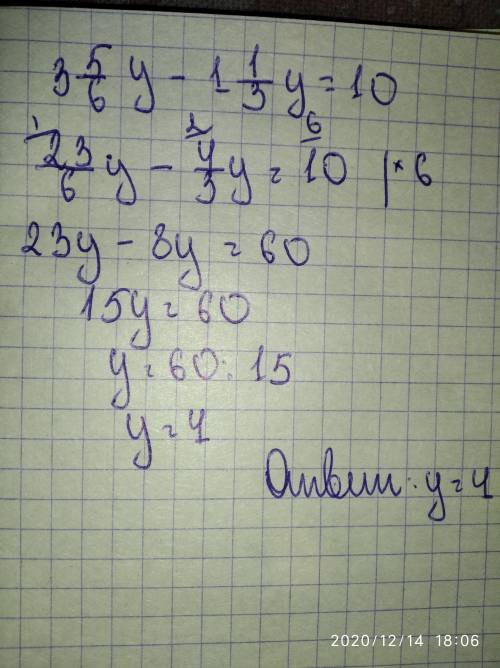 3 5/6 y - 1 1/3 y = 10
1 2 6
23/6 y - 4/3 y = 10 | * 6
23y - 8y = 60
15y = 60
y = 60 : 15
y = 4
Ответ: y = 4
2020/12/14 18:06